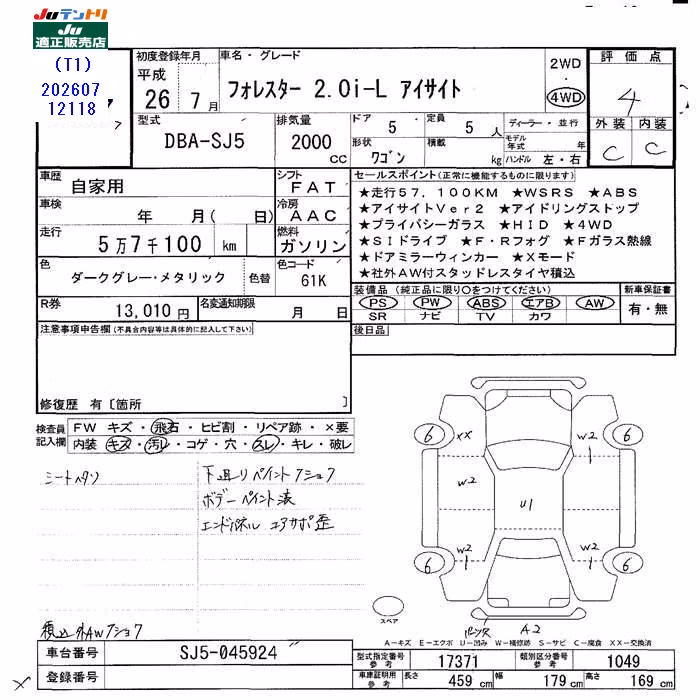 Juテントリ
Ju
適正販売店
(T1)
202607
12118
初度登録年月
平成
26 7 月
車名・グレード
フォレスター 2.0i-L アイサイト
2WD
・
4WD
評価点
4
外装 内装
C C
型式
DBA-SJ5
排気量
2000
cc
ドア
5
定員
5 人
形状
ワゴン
積載
kg
ディーラー・並行
モデル年式
年
ハンドル 左・右
車歴
自家用
シフト
FAT
車検
年 月( 日)
冷房
AAC
走行
5万7千100 km
燃料
ガソリン
色
ダークグレー・メタリック
色替
色コード
61K
R券
13,010円
名変通知期限
月 日
セールスポイント(正常に機能するものに限ります)
★走行57,100KM ★WSRS ★ABS
★アイサイトVer2 ★アイドリングストップ
★プライバシーガラス ★HID ★4WD
★SIドライブ ★F・Rフォグ ★Fガラス熱線
★ドアミラーウィンカー ★Xモード
★社外AW付スタッドレスタイヤ積込
装備品(純正品に限り○をつけてください)
PS PW ABS エアB AW
SR ナビ TV カワ
新車保証書
有・無
後日品
注意事項申告欄(不具合内容等は具体的に記入して下さい)
修復歴 有〔箇所 〕
検査員
記入欄
FW キズ・飛石・ヒビ割・リペア跡・×要
内装 キズ・汚レ・コゲ・穴・スレ・キレ・破レ
シートヘタリ
下廻りペイントクショウ
ボデーペイント済
エンドパネル コアサポ歪
積込外AWクショウ
6
XX
W2
6
W2
U1
W2
W2
6
W2
6
スペア
A2
A-キズ E-エクボ U-凹み W-補修跡 S-サビ C-腐食 XX-交換済
車台番号
SJ5-045924
登録番号
型式指定番号
参考
17371
類別区分番号
参考
1049
車庫証明用
参考
長さ 459 cm 幅 179 cm 高さ 169 cm